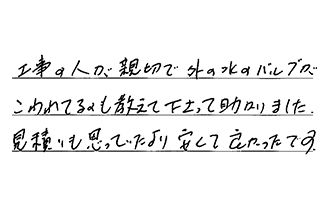 工事の人が親切で外の水のバルブが
こわれてるのも教えて下さって助かりました.
見積りも思っていたより安くて良かったです.